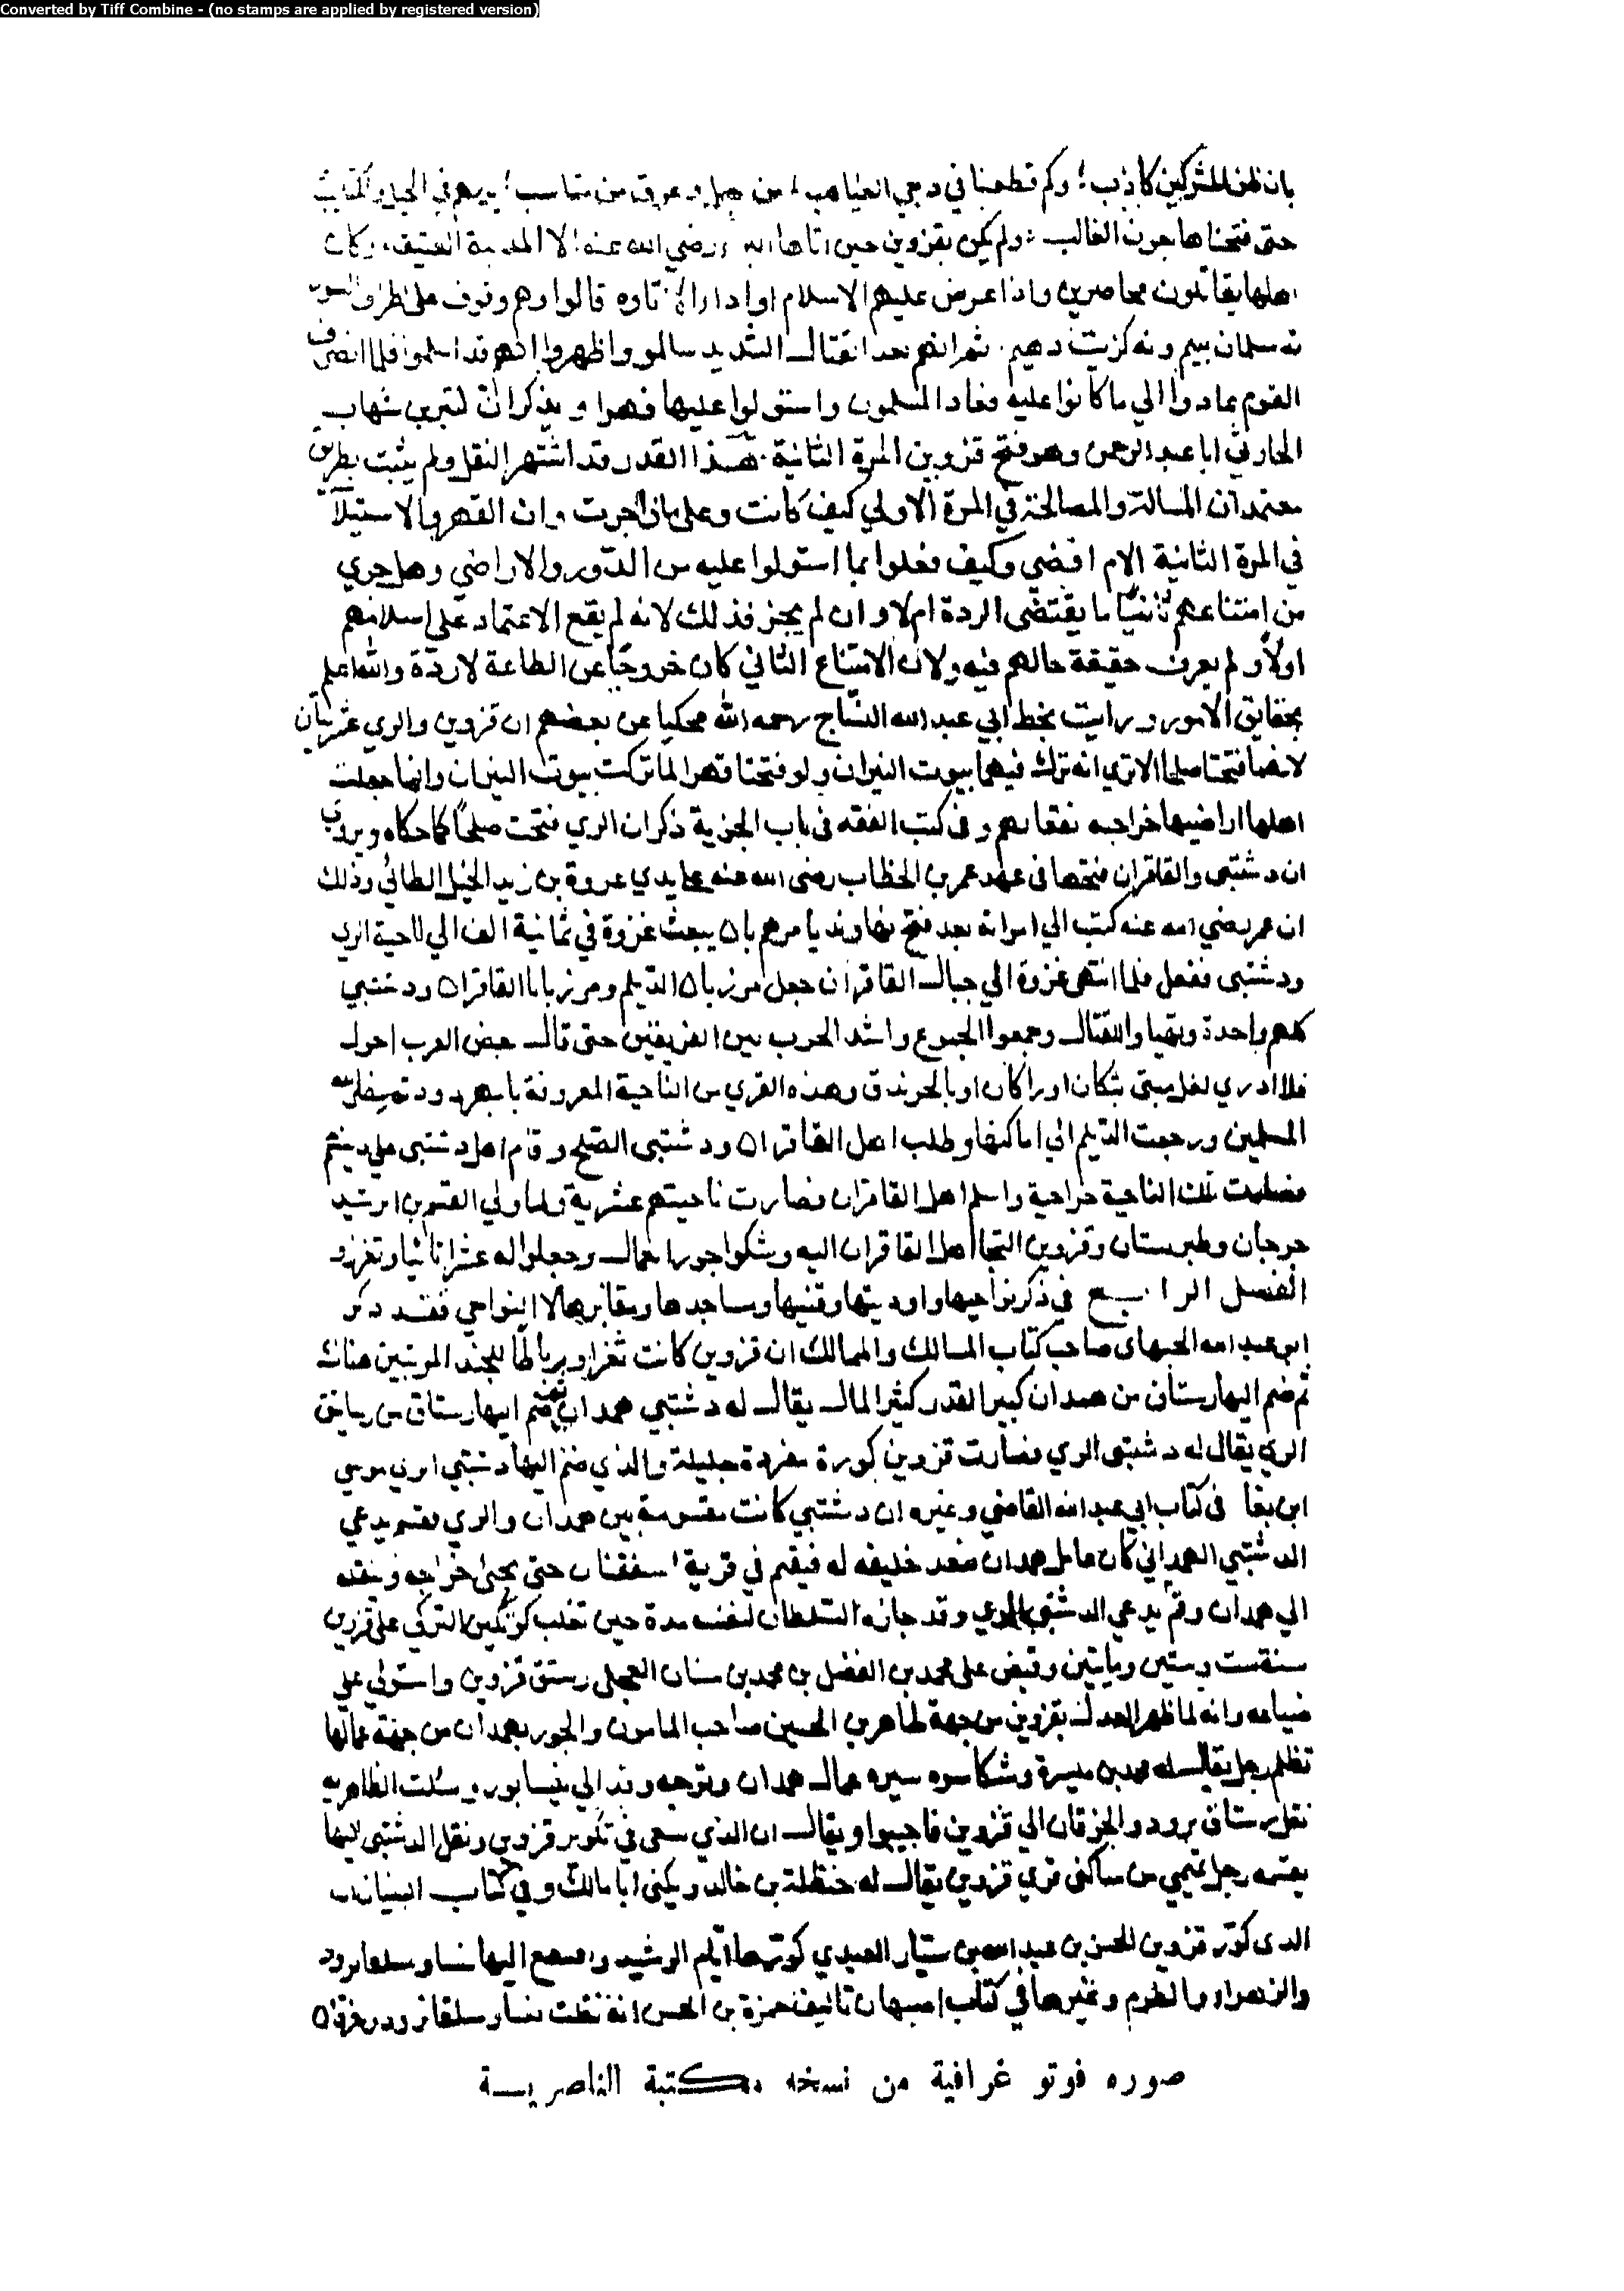 Converted by Tiff Combine - (no stamps are applied by registered version)
بان ظن المشركين كاذب؛ وكم قطعنا في دجي الغياهب، من جبل وعر ومن سباسب؛
حتى فتحناها بعون الغالب؛ ولم يكن بقزوين حين اتاها البراء رضي الله عنه الا المدينة العتيقة، وكان
اهلها يقاتلون محاصرين واذا عرض عليهم الاسلام او اداء قالوا وهم وقوف على
نه مسلمان بيم ونه كزيت دهيم. ثم انهم بعد القتال الشديد سالموا واظهروا انهم قد اسلموا فلما انصرف
القوم عادوا الي ما كانوا عليه فعاد المسلمون واستولوا عليها قهرا ويذكر ان كثير بن شهاب
الحارثي ابا عبد الرحمن وهو فتح قزوين المرة الثانية. هذا القدر قد اشتهر النقل ولم يثبت بطريق
معتمد ان المسالة والمصالحة في المرة الاولي كيف كانت وعلى ماذا جرت وان القهر والاستيلآ
في المرة الثانية الام افضي وكيف فعلوا بما استولوا عليه من الدور والاراضي وهل جري
من امتناعهم ثانيًا ما يقتضى الردة ام لا وان لم يجز فذلك لانه لم يقع الاعتماد على اسلامهم
اولًا ولم يعرف حقيقة حالهم فيه ولان الامتناع الثاني كان خروجًا عن الطاعة لا ردة والله اعلم
بحقايق الامور ورايت بخط ابي عبد الله النساج رحمه الله محكيا عن بعضهم ان قزوين والري عشريتان
لانهما فتحتا صلحا الا تري انه ترك فيهما بيوت النيران ولو فتحتا قهرا لما تركت بيوت النيران وانما جعلت
اهلها اراضيها خراجيه وفى كتب الفقه فى باب الجزية ذكر ان الري فتحت صلحًا كما حكاه ويروي
ان دشتبى والقاقزان فتحتا فى عهد عمر بن الخطاب رضى الله عنه على يدي عروة بن زيد الخيل الطائي وذلك
ان عمر رضي الله عنه كتب الي امرائه بعد فتح نهاوند يامرهم بان يبعث عزوة في ثمانية الف الي ناحية الري
ودشتبى ففعل فلما انتهى عزوة الي جبال القاقزان جعل مرزبان الديلم ومرزبانا القاقزان ودشتبي
كلهم واحدة وتهياوا للقتال وجمعوا الجموع واشتد الحرب بين الفريقين حتى قال بعض العرب احول
فلا ادري لعل مبيتى بتكان او راكان او بالجوندق وهذه القري من الناحية المعرونة
المسلمين ورجعت الديلم الي اماكنها وطلب اهل القاقزان ودشتبى الصلح وقام اهل دشتبى على دينهم
فصارت تلك الناحية خراجية واسلم اهل القاقزان فصارت ناحيتهم عشرية ولما ولي القسم بن الرشيد
جرجان وطبرستان وقزوين التجا اهل القاقزان اليه وشكوا جور العمال وجعلوا له عشرا ثانيا وتعززو
الفصل الرابع في ذكر نواحيها واوديتها وقنيها ومساجدها ومقابرها اما النواحي فقد ذكر
ابو عبد الله الجيهانى صاحب كتاب المسالك والممالك ان قزوين كانت ثغرا ورباطا للجند المرتبين هناك
ثم ضم اليها رستاق من همدان كبير القدر كثير المال يقال له دشتبي همدان ثم ضم اليها رستاق من رساتيق
الري يقال له دشتبى الري فصارت قزوين كورة مفردة جليلة والذي ضم اليها دشتبي الري موسي
ابن بغا فى كتاب ابي عبد الله القاضي وغيره ان دشتبي كانت مقسومة بين همدان والري فقسم يدعي
الدشتبي الهمداني كان عامل همدان ينفذ خليفه له فيقيم في قرية اسفقنان حتى يجبى خراجه وينقله
الي همدان وقسم يدعي الدشتبي الرازي وقد حازه السلطان لنفسه مدة حين تغلب كوتكين التركي على قزوين
سنة ست وستين ومايتين وقبض على محمد بن الفضل بن محمد بن سنان العجلي رستق قزوين واستولي علي
ضياعه وانه لما ظهر العدل بقزوين من جهة طاهر بن الحسين صاحب المامون والجور بهمدان من جهة عمالها
تظلم رجل يقال له محمد بن ميسرة وشكا سوء سيره عمال همدان وتوجه وفد الي نيسابور وسئلت الطاهريه
نقل رستاق برود والخرقان الي قزوين فاجيبوا ويقال ان الذي سعى في تكوير قزوين ونقل الدشتبى اليها
بقسميه رجل تميمي من ساكنى قري قزوين يقال له حنظلة بن خالد ويكنى ابا مالك وفي كتاب البنيان
الذى كور قزوين الحسن بن عبد الله بن سيار العبيدي كورها ايام الرشيد وجمع اليها نسا وسلقانرود
والزهراء والطرم وغيرها في كتاب اصبهان تاليف حمزة بن الحسن انه نقلت نسا وسلقانرود وخرقان
صوره فوتو غرافية من نسخه مكتبة الناصريسة